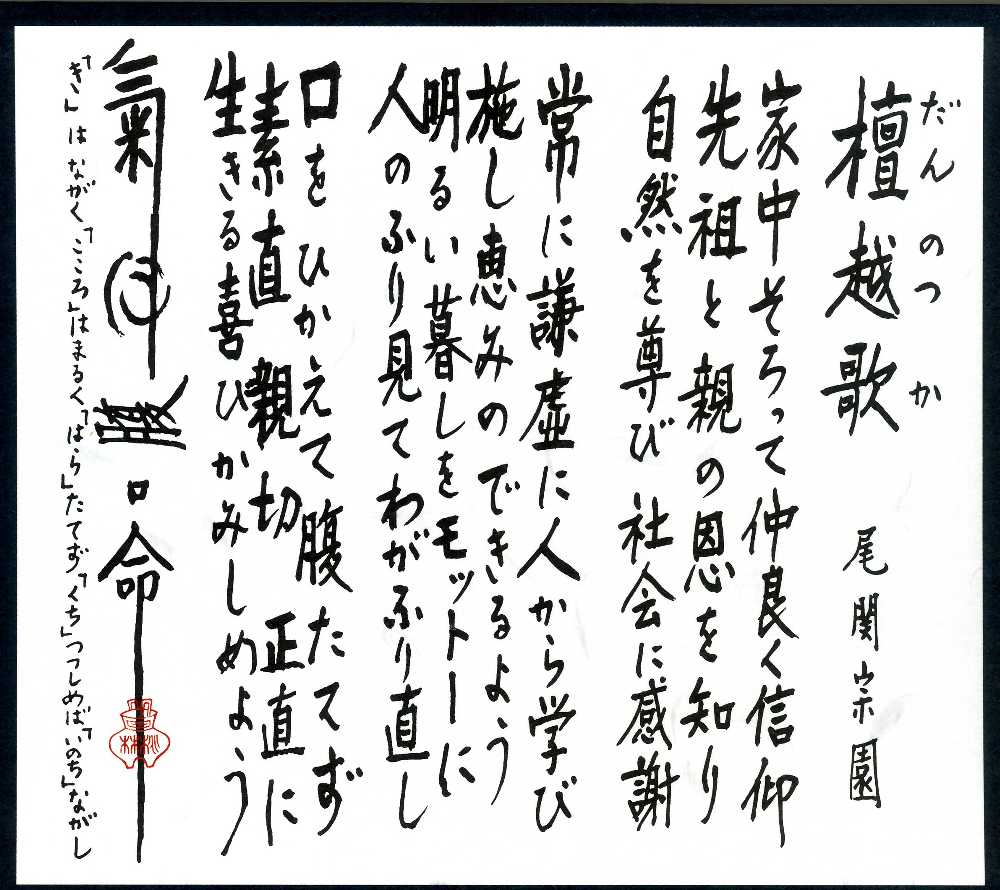 だんのつか
檀越歌
尾関宗園
家中そろって仲良く信仰
先祖と親の恩を知り
自然を尊び社会に感謝
常に謙虚に人から学び
施し恵みのできるよう
明るい暮しをモットーに
人のふり見てわがふり直し
口をひかえて腹たてず
素直親切正直に
生きる喜びかみしめよう
氣心 口命
「き」はながく「こころ」はまるく「はら」たてず「くち」つつしめば「いのち」ながし